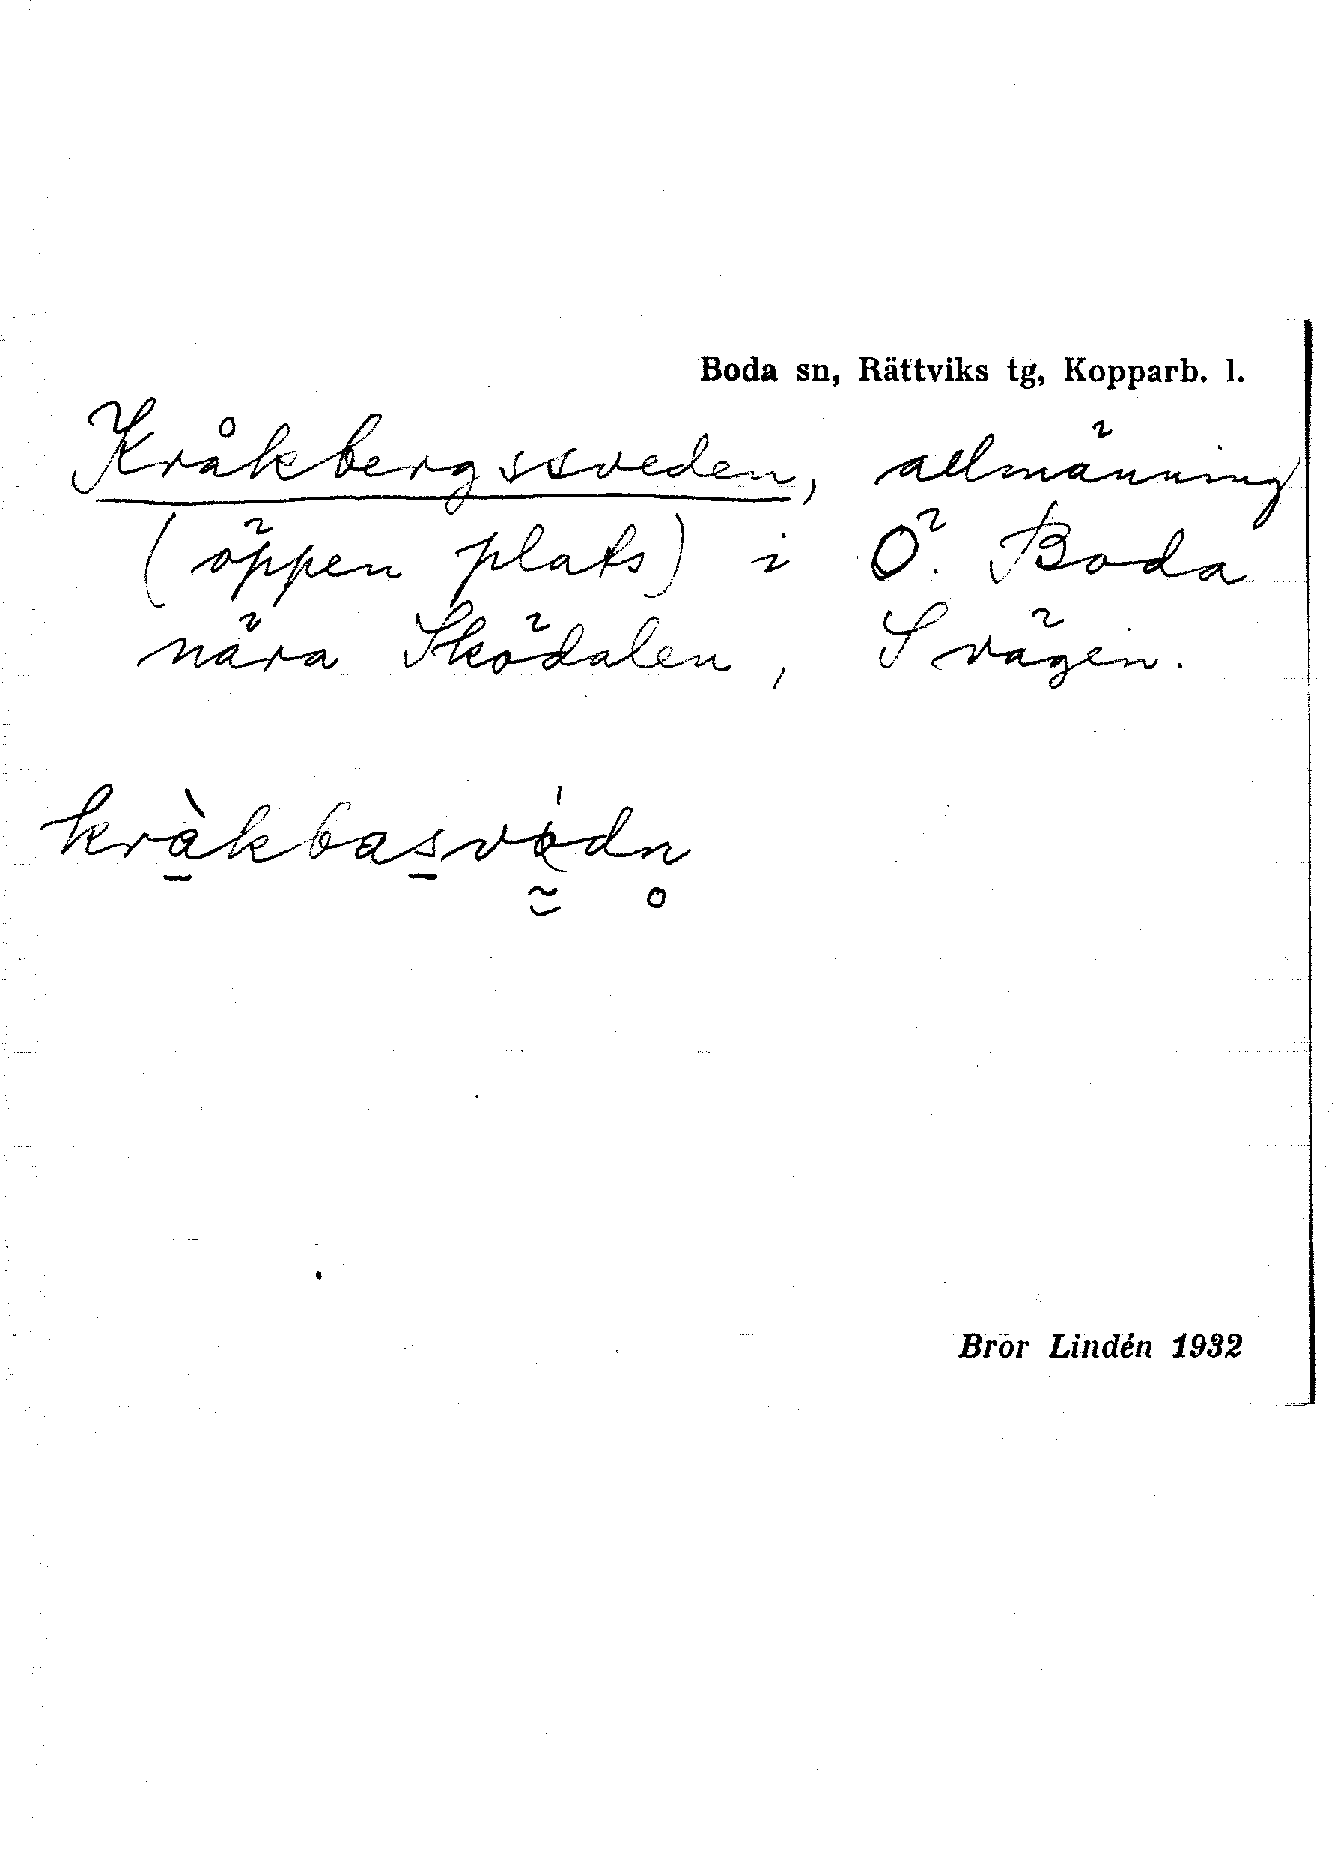 Boda sn, Rättviks tg, Kopparb. l.
Kråkbergssveden, allmänning
(öppen plats) i Ö. Boda
nära Sködalen, S vägen.
Bror Lindén 1932